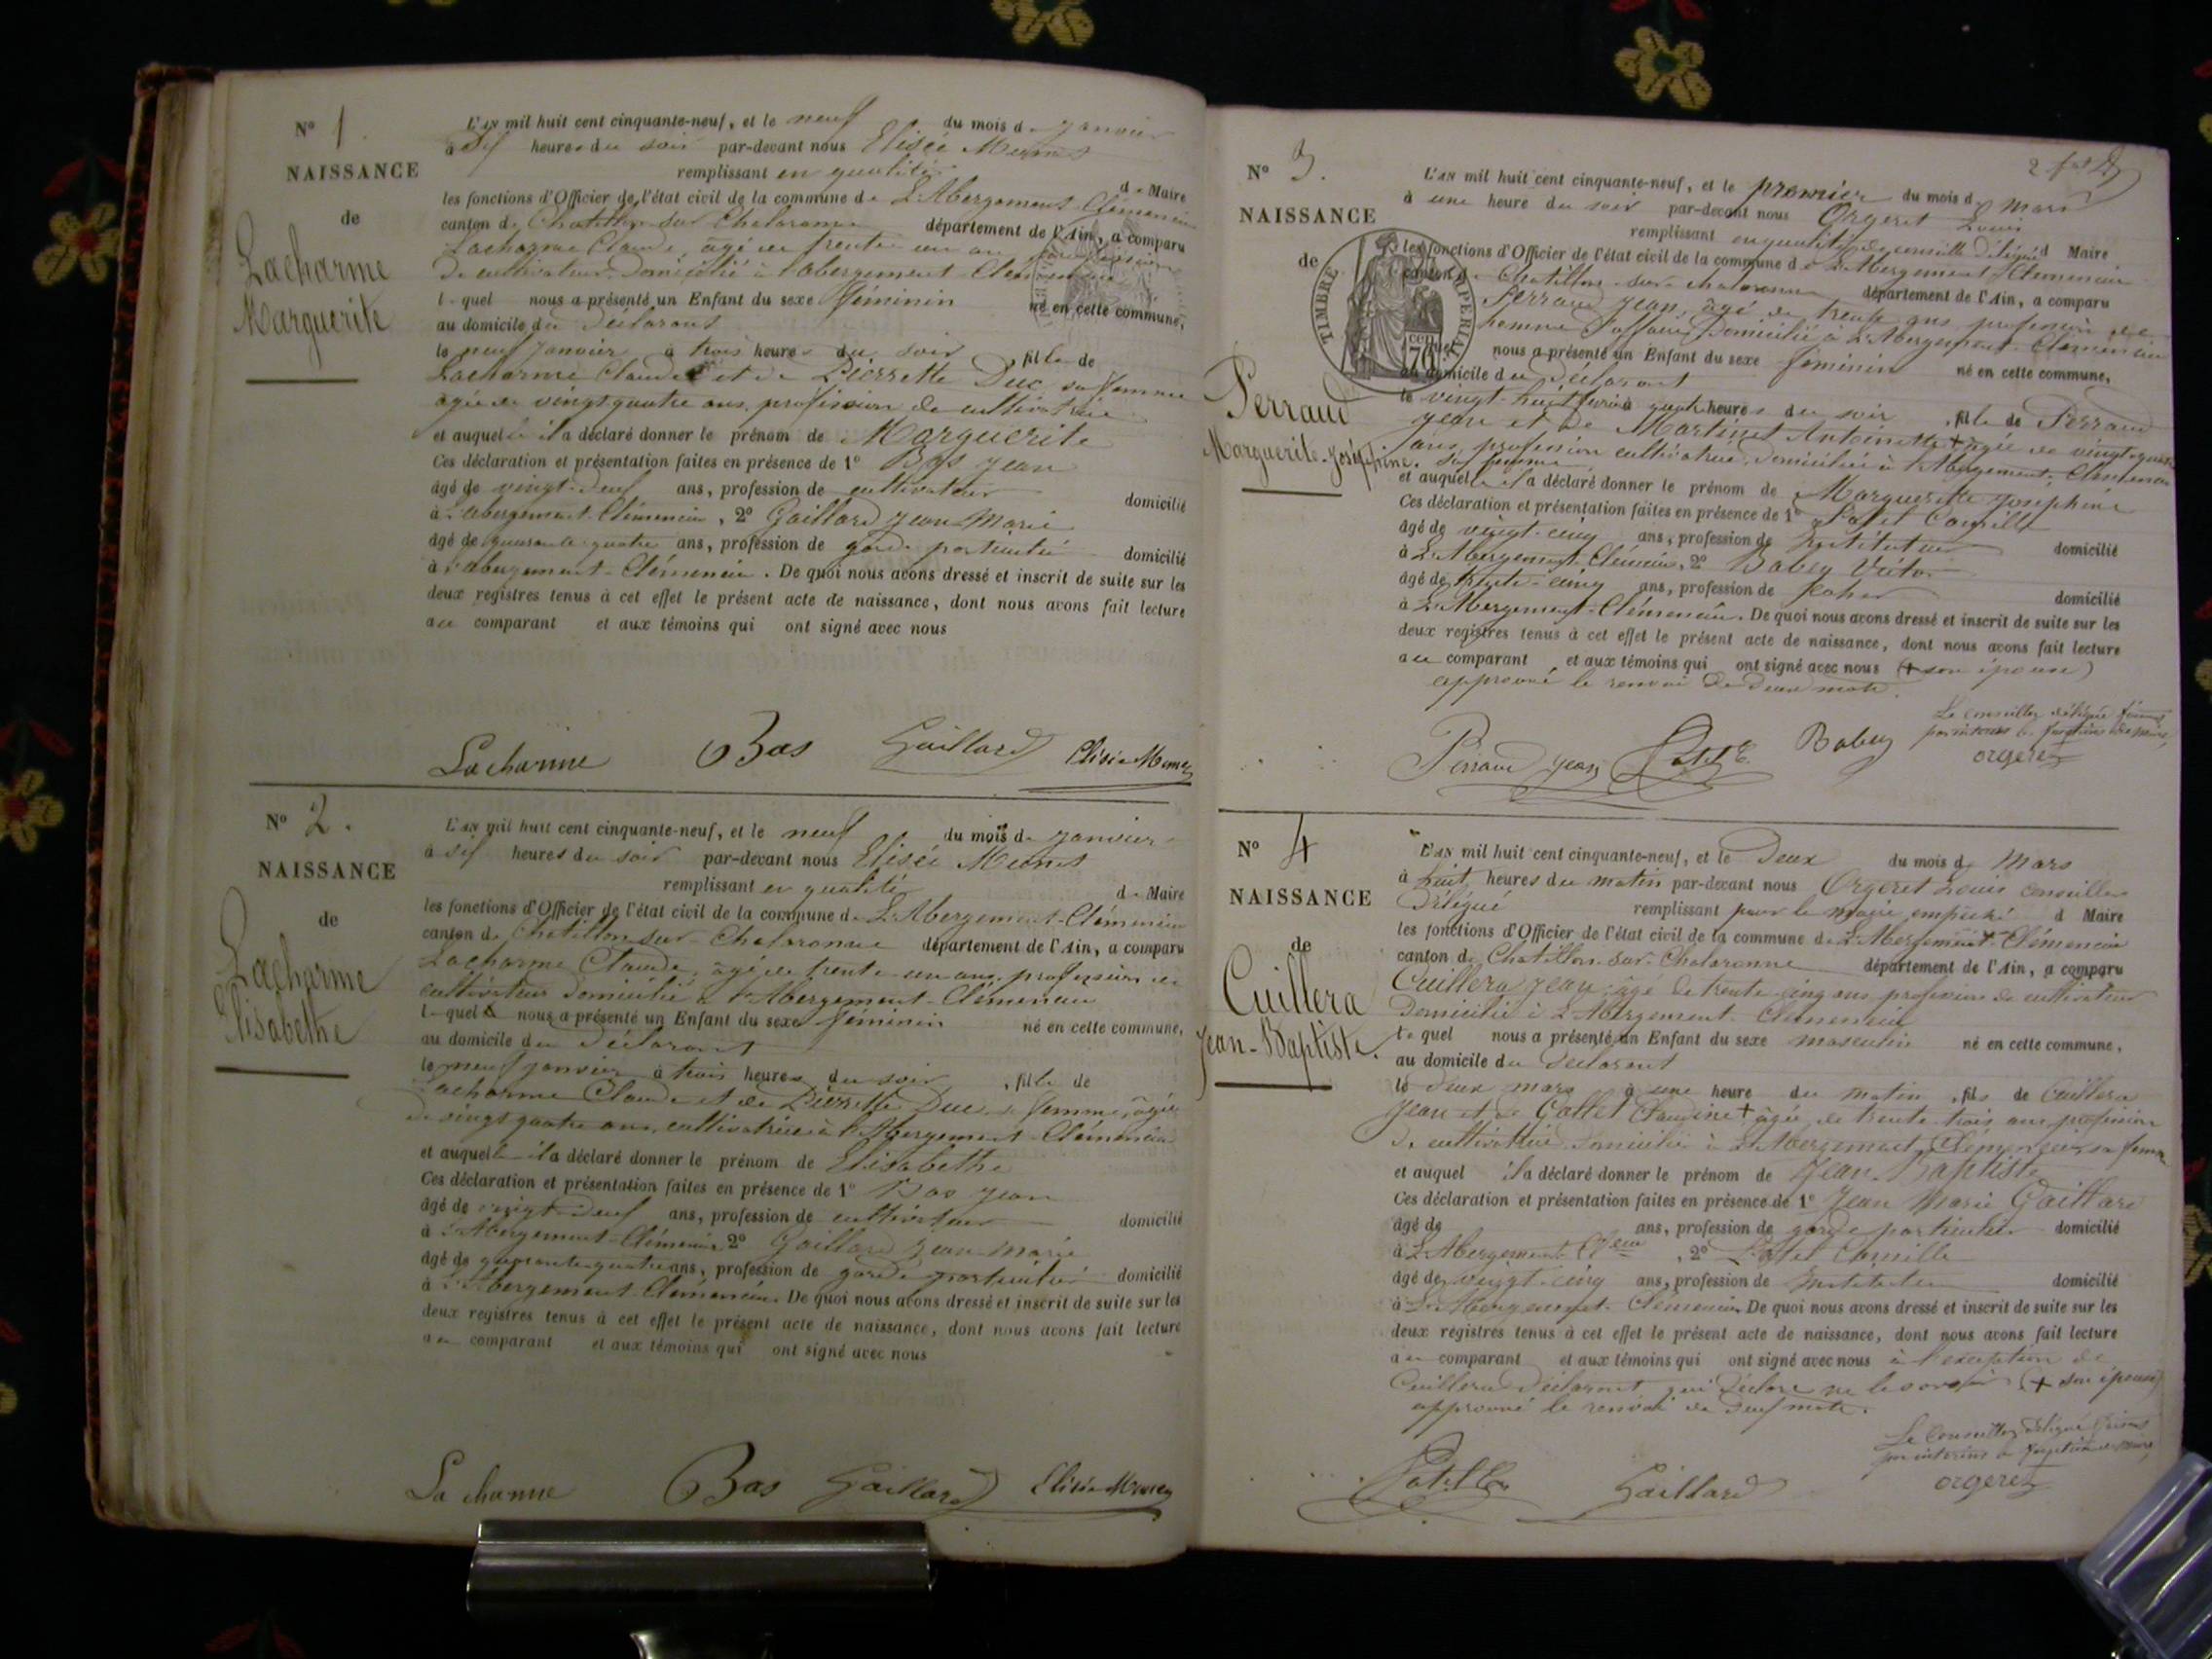 N° 1.
NAISSANCE
de
Lacharme
Marguerite
L'AN mil huit cent cinquante-neuf, et le neuf du mois de janvier
à six heures du soir par-devant nous Elisée
remplissant en qualité de Maire
les fonctions d'Officier de l'état civil de la commune de L'Abergement-Clémencia
canton de Chatillon sur Chalaronne département de l'Ain, a comparu
Lacharme Claude, âgé de trente un an profession
de cultivateur domicilié à l'abergement Clémencia
lequel nous a présenté un Enfant du sexe féminin né en cette commune,
au domicile du déclarant
le neuf janvier à trois heures du soir, fille de
Lacharme Claude et de Pierrette Duc sa femme
agée de vingt quatre ans, profession de cultivatrice
et auquelle il a déclaré donner le prénom de Marguerite
Ces déclaration et présentation faites en présence de 1° Bas Jean
âgé de vingt-neuf ans, profession de cultivateur domicilié
à l'abergement-Clémencia, 2° Gaillard Jean Marie
âgé de quarante quatre ans, profession de garde particulier domicilié
à l'abergement-Clémencia. De quoi nous avons dressé et inscrit de suite sur les
deux registres tenus à cet effet le présent acte de naissance, dont nous avons fait lecture
au comparant et aux témoins qui ont signé avec nous
Lacharme Bas Gaillard Elisée
N° 2.
NAISSANCE
de
Lacharme
Elisabethe
L'AN mil huit cent cinquante-neuf, et le neuf du mois de janvier
à six heures du soir par-devant nous Elisée
remplissant en qualité de Maire
les fonctions d'Officier de l'état civil de la commune de L'Abergement-Clémencia
canton de Chatillon sur Chalaronne département de l'Ain, a comparu
Lacharme Claude, âgé de trente un ans, profession de
cultivateur domicilié à l'Abergement-Clémencia
lequel nous a présenté un Enfant du sexe féminin né en cette commune,
au domicile du déclarant
le neuf janvier à trois heures du soir, fille de
Lacharme Claude et de Pierrette Duc sa femme, âgée
de vingt quatre ans, cultivatrice à l'Abergement-Clémencia
et auquelle il a déclaré donner le prénom de Elisabethe
Ces déclaration et présentation faites en présence de 1° Bas Jean
âgé de vingt-neuf ans, profession de cultivateur domicilié
à l'Abergement-Clémencia 2° Gaillard Jean Marie
âgé de quarante quatre ans, profession de garde particulier domicilié
à l'Abergement-Clémencia. De quoi nous avons dressé et inscrit de suite sur les
deux registres tenus à cet effet le présent acte de naissance, dont nous avons fait lecture
au comparant et aux témoins qui ont signé avec nous
Lacharme Bas Gaillard Elisée
N° 3.
NAISSANCE
de
TIMBRE IMPERIAL
70
Perraud
Marguerite-Joséphine.
L'AN mil huit cent cinquante-neuf, et le premier du mois de mars
à une heure du soir par-devant nous Orgeret Louis
remplissant en qualité de conseiller délégué d Maire
les fonctions d'Officier de l'état civil de la commune de L'Abergement Clémencia
canton de Chatillon-sur-chalaronne département de l'Ain, a comparu
Perraud Jean, âgé de trente ans profession de
homme d'affaires domicilié à L'Abergement-Clémencia
lequel nous a présenté un Enfant du sexe féminin né en cette commune,
au domicile du déclarant
le vingt-huit février à quatre heures du soir, fille de Perraud
Jean et de Martinet Antoinette + âgée de vingt-quatre
ans, profession cultivatrice, domiciliée à l'Abergement-Clémencia
sa femme
et auquelle il a déclaré donner le prénom de Marguerite Joséphine
Ces déclaration et présentation faites en présence de 1° Camille
âgé de vingt-cinq ans, profession de instituteur domicilié
à L'Abergement-Clémencia, 2° Babey Victor
âgé de trente-cinq ans, profession de domicilié
à L'Abergement-Clémencia. De quoi nous avons dressé et inscrit de suite sur les
deux registres tenus à cet effet le présent acte de naissance, dont nous avons fait lecture
au comparant et aux témoins qui ont signé avec nous (+ son épouse)
approuvé le renvoi de deux mots.
Perraud Jean Babey
Le conseiller délégué
par intérim les fonctions de maire,
orgeret
N° 4
NAISSANCE
de
Cuillera
Jean-Baptiste.
L'AN mil huit cent cinquante-neuf, et le Deux du mois de Mars
à huit heures du matin par-devant nous Orgeret Louis conseiller
délégué remplissant pour le maire empêché d Maire
les fonctions d'Officier de l'état civil de la commune de L'Abergement-Clémencia
canton de Chatillon-sur-Chalaronne département de l'Ain, a comparu
Cuillera Jean, âgé de trente-cinq ans profession de cultivateur
domicilié à L'Abergement-Clémencia
lequel nous a présenté un Enfant du sexe masculin né en cette commune,
au domicile du déclarant
le deux mars à une heure du matin, fils de Cuillera
Jean et de Gallet Claudine + âgée de trente-trois ans profession
de cultivatrice domiciliée à L'Abergement Clémencia, sa femme
et auquel il a déclaré donner le prénom de Jean-Baptiste
Ces déclaration et présentation faites en présence de 1° Jean Marie Gaillard
âgé de ans, profession de garde particulier domicilié
à L'Abergement, 2° Camille
âgé de vingt-cinq ans, profession de instituteur domicilié
à L'Abergement-Clémencia De quoi nous avons dressé et inscrit de suite sur les
deux registres tenus à cet effet le présent acte de naissance, dont nous avons fait lecture
au comparant et aux témoins qui ont signé avec nous à l'exception de
Cuillera déclarant qui déclare ne le savoir (+ son épouse)
approuvé le renvoi de deux mots.
Gaillard
Le Conseiller délégué
par intérim les fonctions de maire,
orgeret